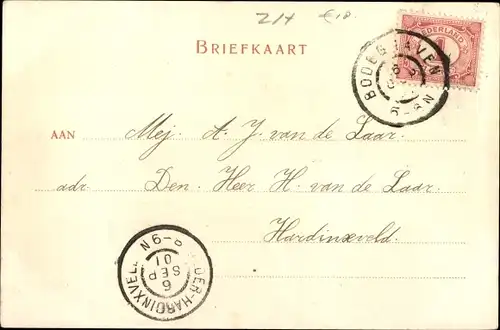 214 €18.
BRIEFKAART
NEDERLAND
1
BODEGRAVEN
5-8N
AAN Mej. A. J. van de Laar.
adr. Den Heer H. van de Laar.
Hardinxveld.
6
SEP
01
6-9N